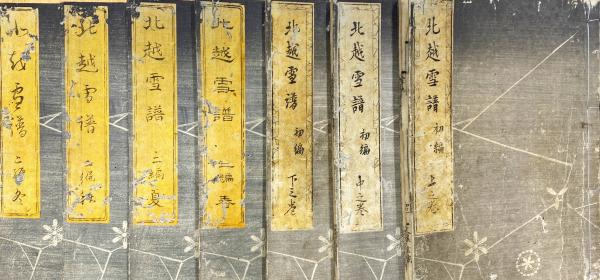 北越雪譜 初編 上之巻
北越雪譜 初編 中之巻
北越雪譜 初編 下之巻
北越雪譜 二編 春
北越雪譜 二編 夏
北越雪譜 二編 秋
北越雪譜 二編 冬